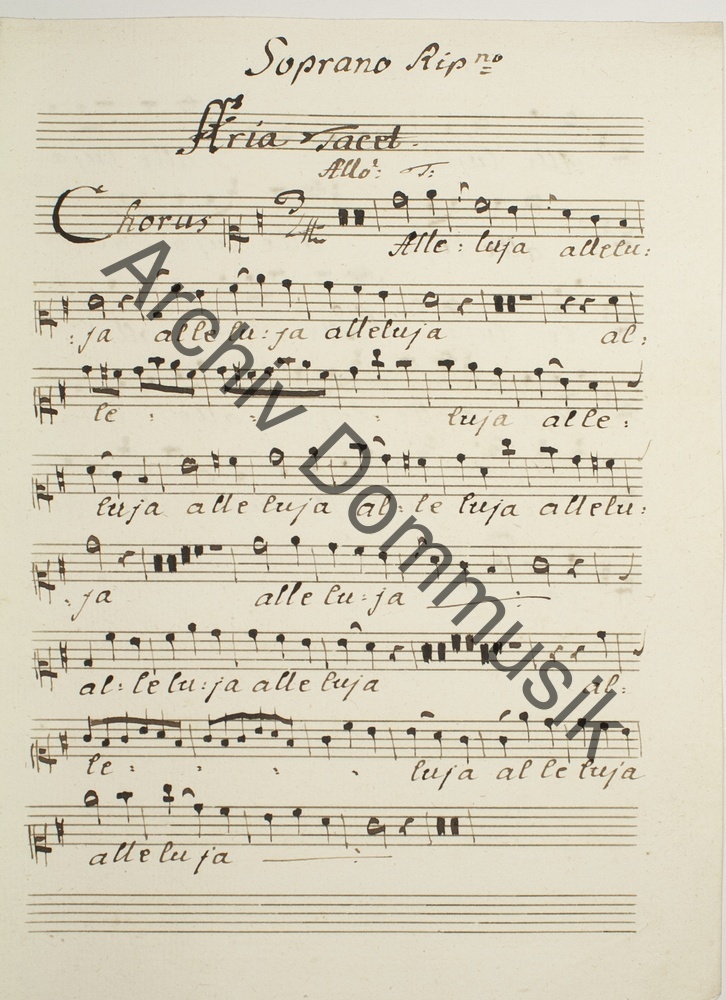 Soprano Rip no
Aria Tacet.
Allo: T:
Chorus
Alle: luja allelu:
:ja alle lu: ja alleluja al:
le : : : luja alle:
luja alle luja al: le luja allelu:
:ja alle lu: ja
al: le lu: ja alle luja al:
le: : : . luja al le luja
alle lu ja
Archiv Dommusik